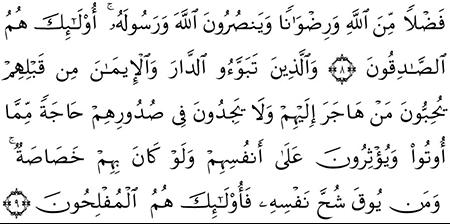 فَضْلًا مِّنَ ٱللَّهِ وَرِضْوَٰنًا وَيَنصُرُونَ ٱللَّهَ وَرَسُولَهُۥٓ ۚ أُو۟لَـٰٓئِكَ هُمُ
ٱلصَّـٰدِقُونَ ﴿٨﴾ وَٱلَّذِينَ تَبَوَّءُو ٱلدَّارَ وَٱلْإِيمَـٰنَ مِن قَبْلِهِمْ
يُحِبُّونَ مَنْ هَاجَرَ إِلَيْهِمْ وَلَا يَجِدُونَ فِى صُدُورِهِمْ حَاجَةً مِّمَّآ
أُوتُوا۟ وَيُؤْثِرُونَ عَلَىٰٓ أَنفُسِهِمْ وَلَوْ كَانَ بِهِمْ خَصَاصَةٌ ۚ
وَمَن يُوقَ شُحَّ نَفْسِهِۦ فَأُو۟لَـٰٓئِكَ هُمُ ٱلْمُفْلِحُونَ ﴿٩﴾